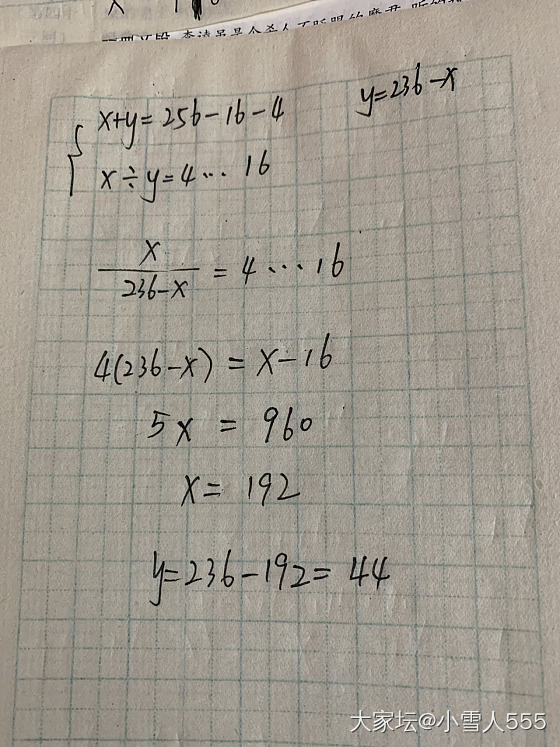 x+y=256-16-4
y=236-x
x÷y=4…16
x/(236-x)=4…16
4(236-x)=x-16
5x=960
x=192
y=236-192=44
大家坛@小雪人555